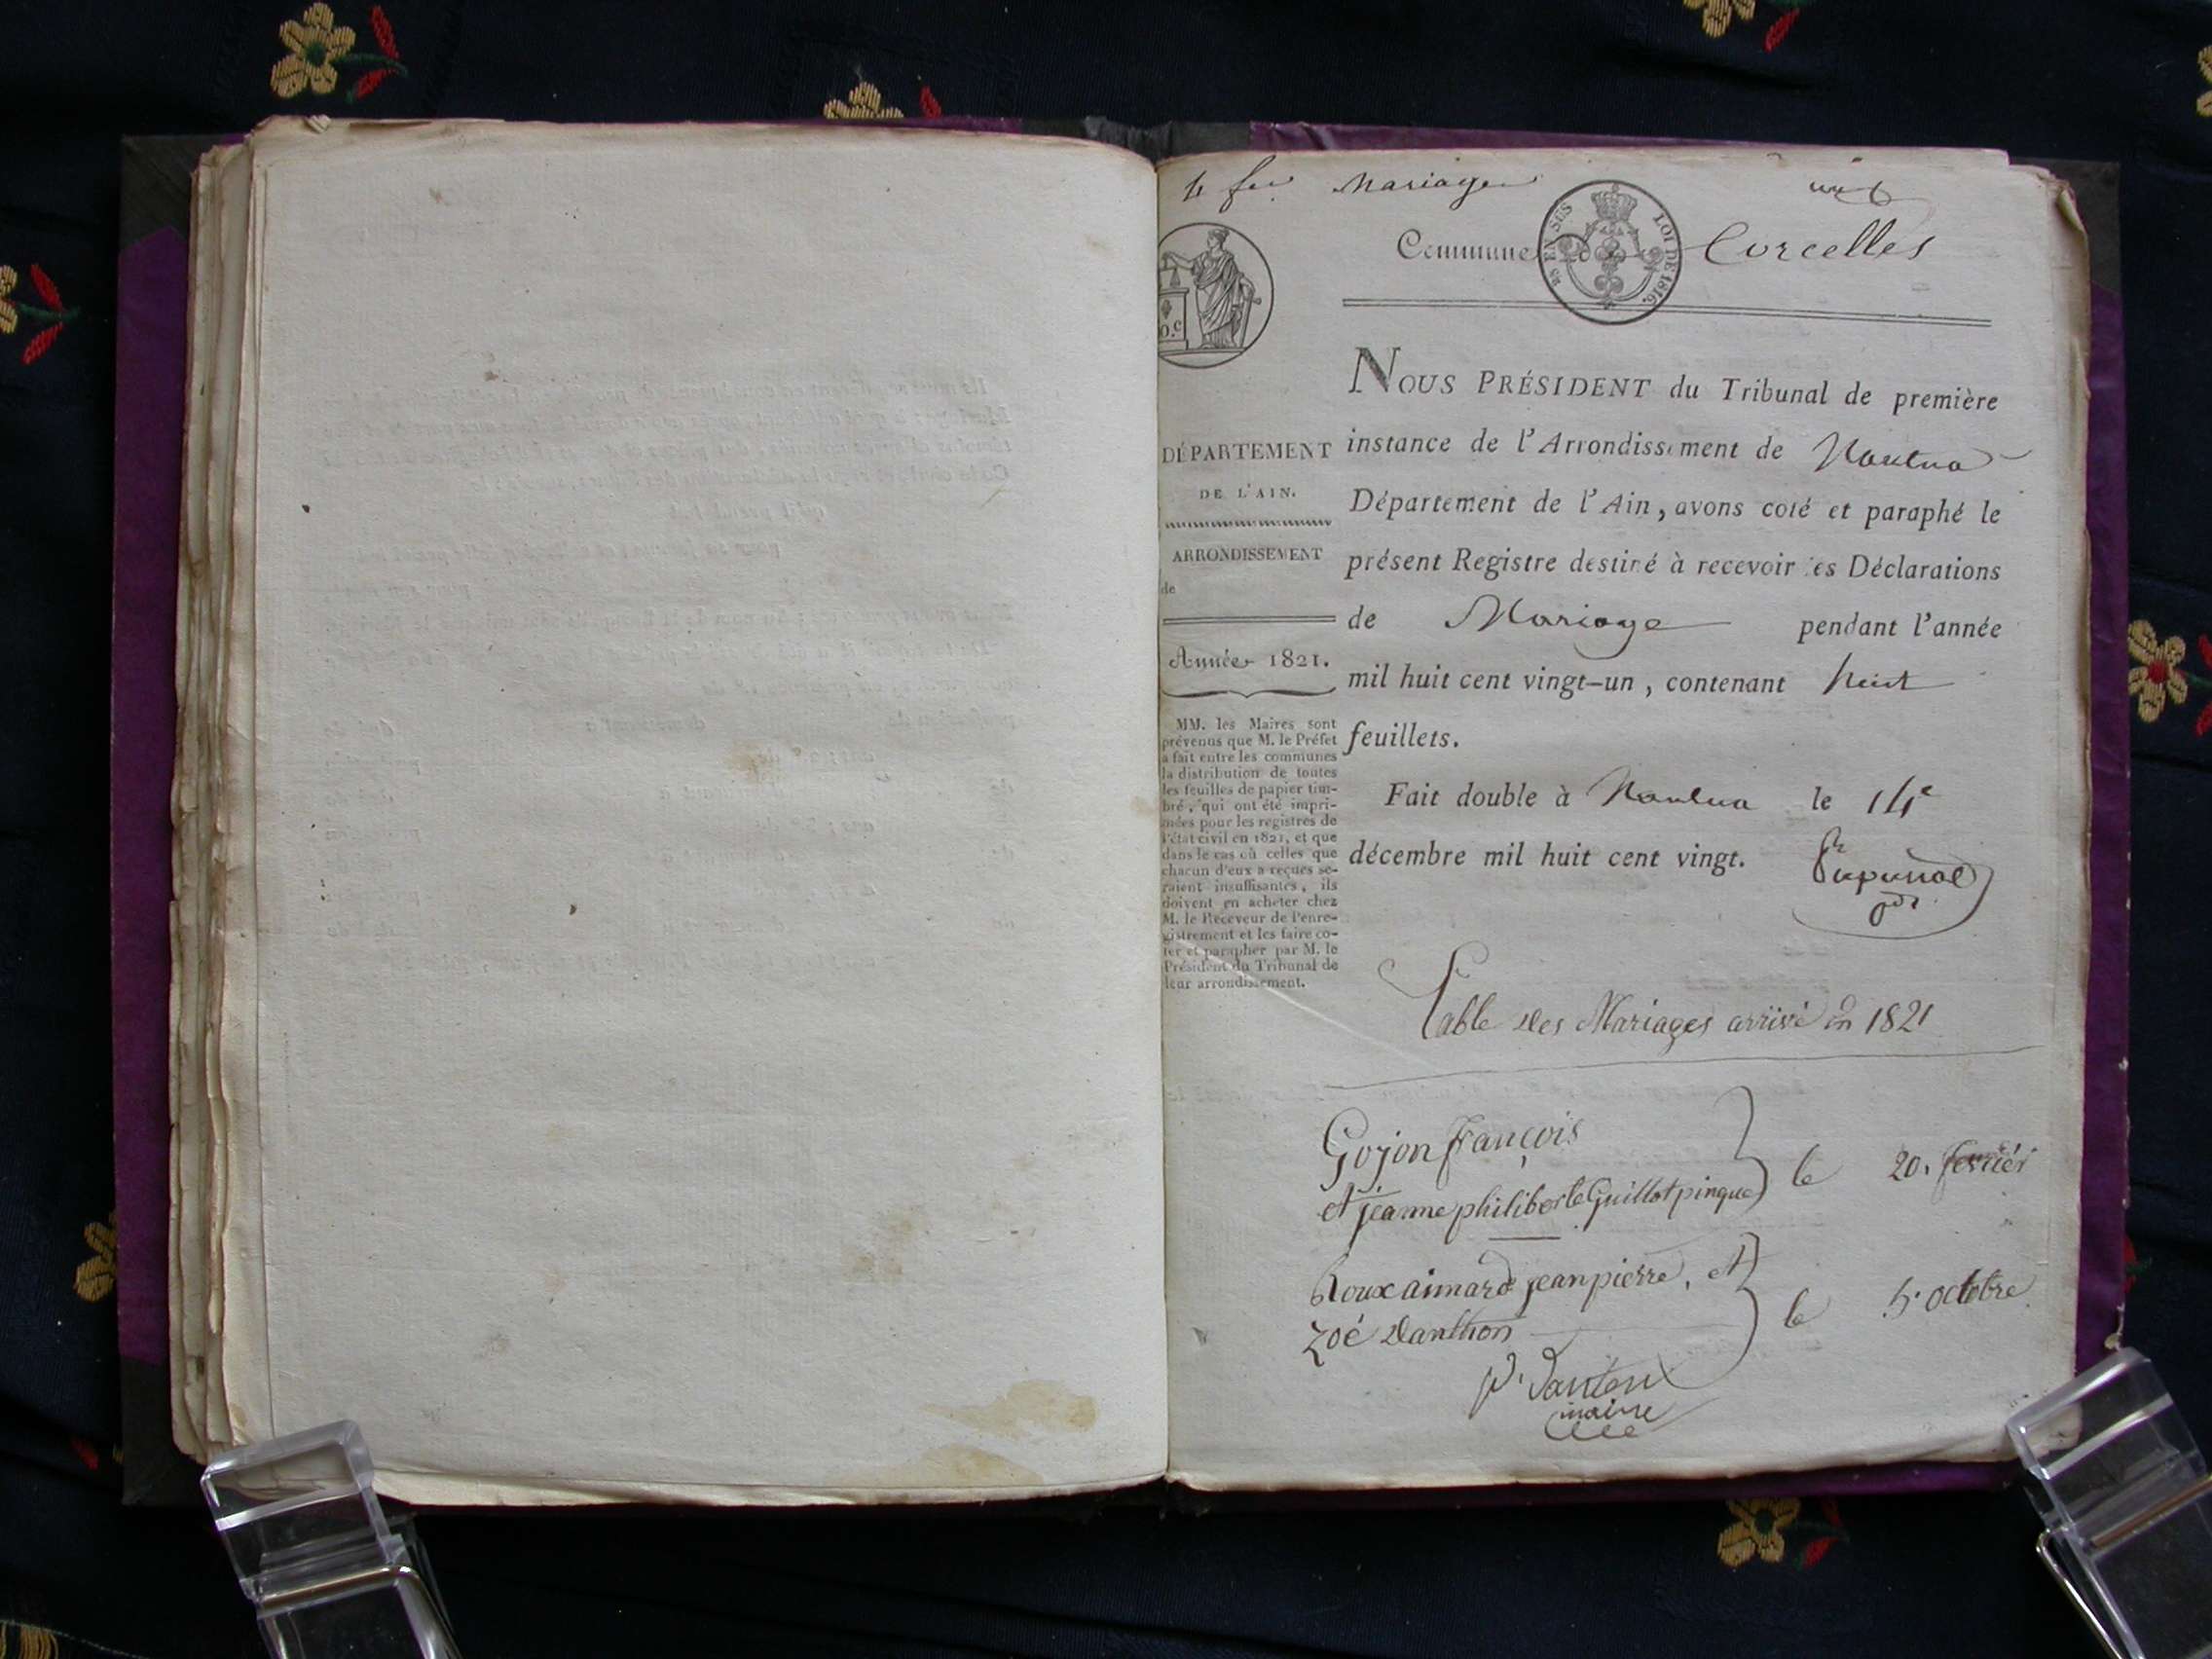 4 feu Mariage
Commune de Corcelles
LOI DE 1816.
EN SUS
0.c
NOUS PRÉSIDENT du Tribunal de première
instance de l'Arrondissement de Nantua
Département de l'Ain, avons coté et paraphé le
présent Registre destiné à recevoir les Déclarations
de Mariage pendant l'année
mil huit cent vingt-un, contenant huit
feuillets.
Fait double à Nantua le 14e
décembre mil huit cent vingt.
DÉPARTEMENT
DE L'AIN.
ARRONDISSEMENT
de
Année 1821.
MM. les Maires sont
prévenus que M. le Préfet
a fait entre les communes
la distribution de toutes
les feuilles de papier tim-
bré, qui ont été impri-
mées pour les registres de
l'état civil en 1821, et que
dans le cas où celles que
chacun d'eux a reçues se-
raient insuffisantes, ils
doivent en acheter chez
M. le Receveur de l'enre-
gistrement et les faire co-
ter et parapher par M. le
Président du Tribunal de
leur arrondissement.
Table des Mariages arrivé en 1821
Gojon françois
et jeanne philiberte Guillot pingue le 20. fevriér
Roux aimard jean pierre, et
zoé Danthon le 5. octobre
maire